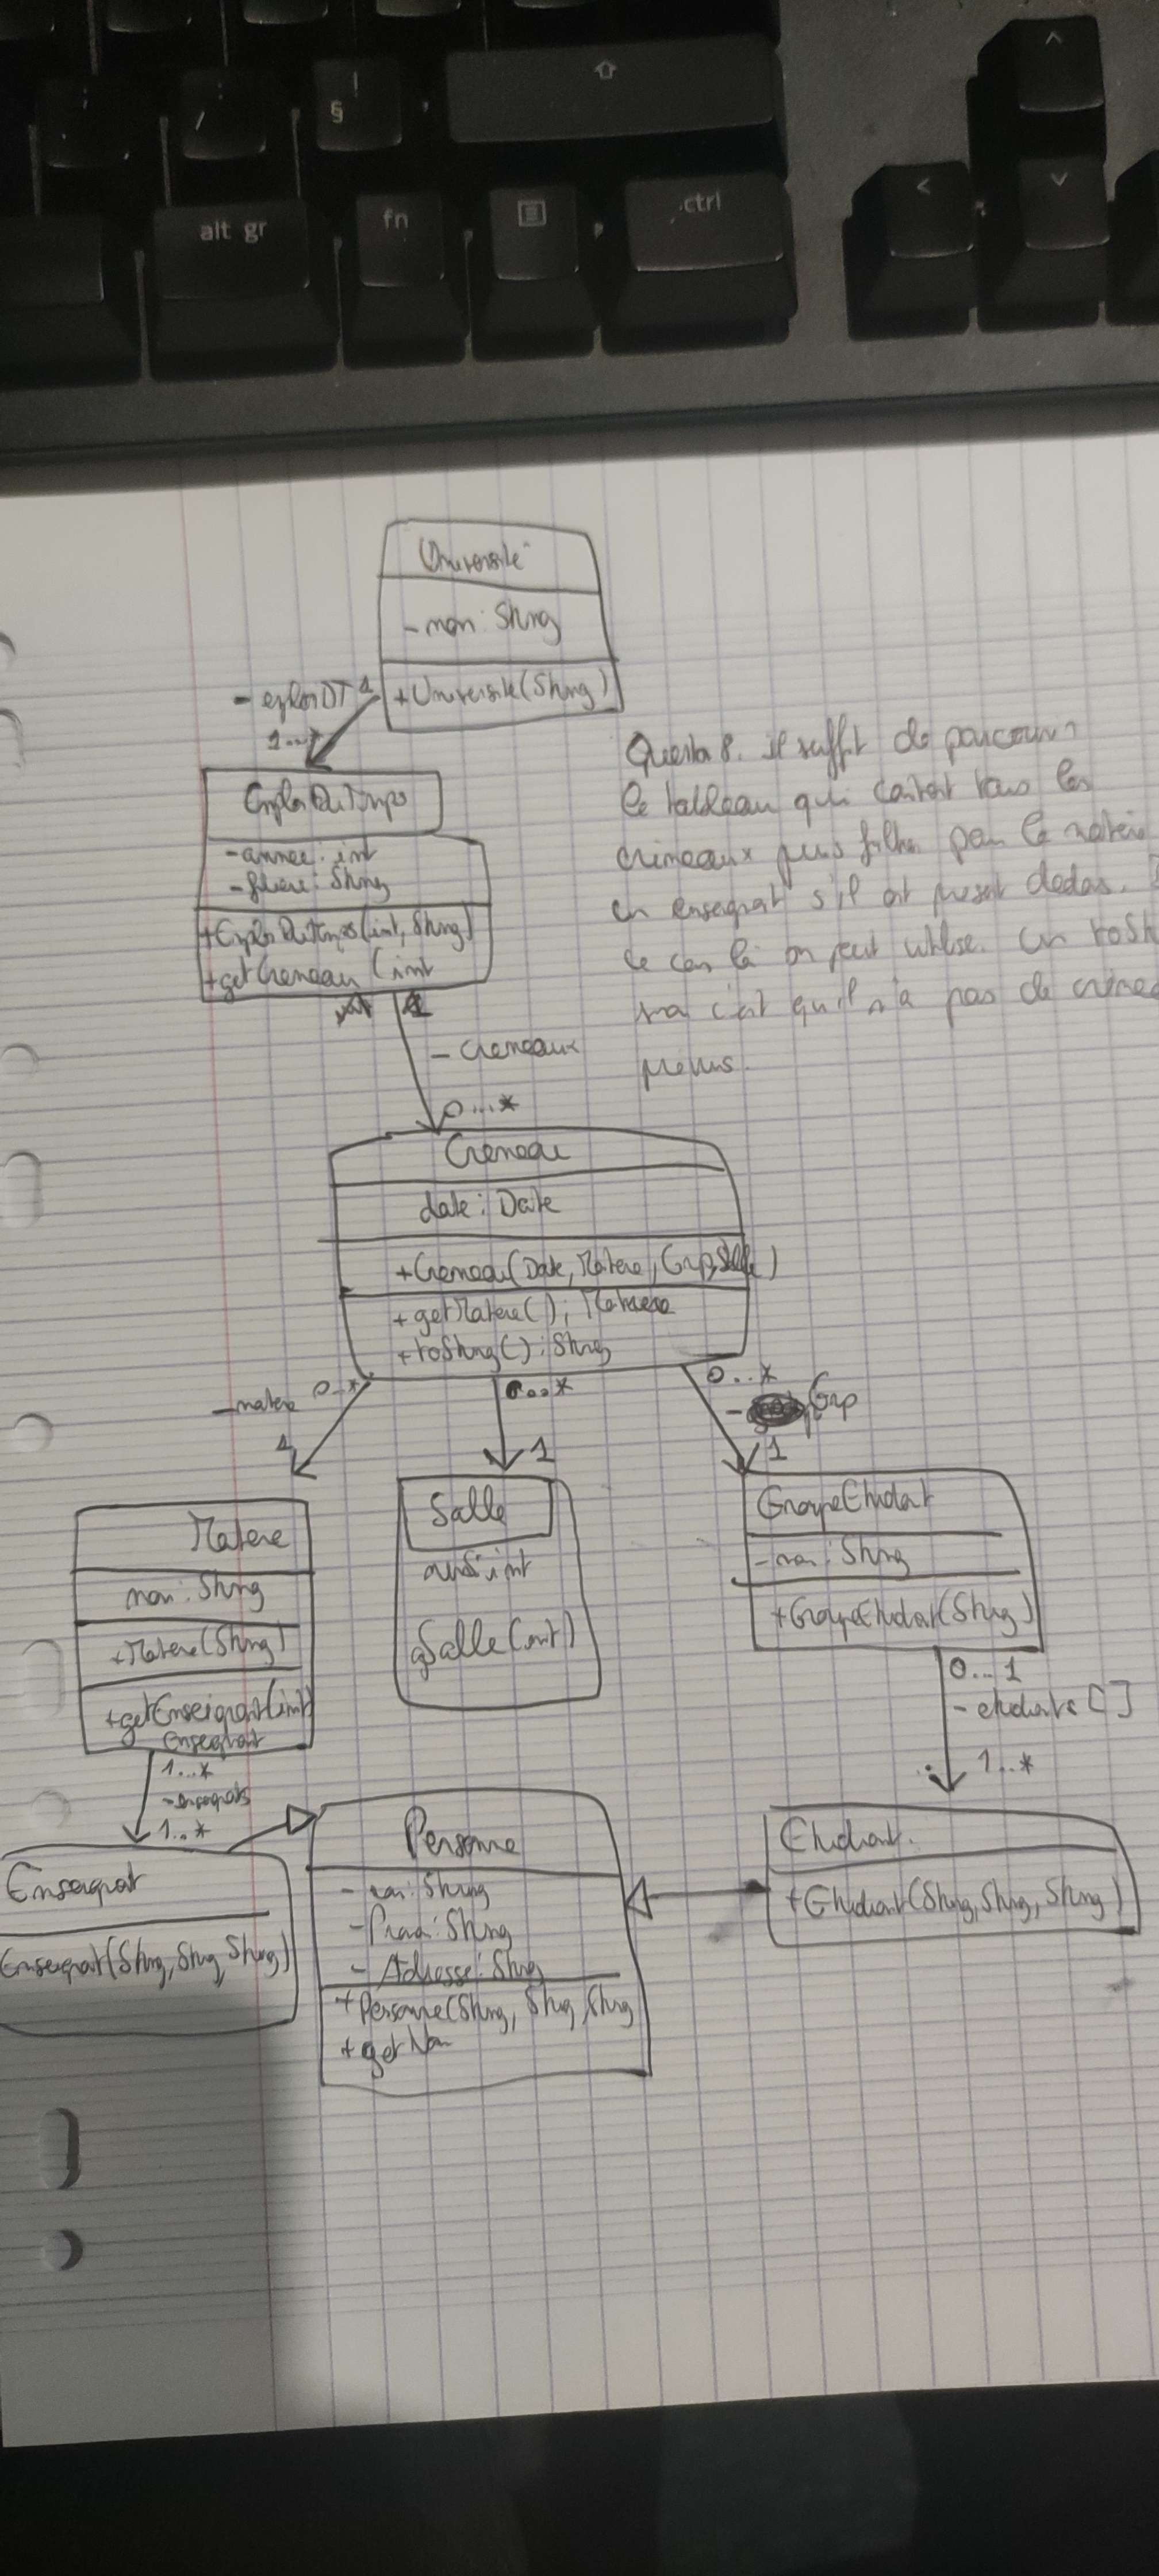 ! §
/
alt gr
fn
ctrl
Université
- nom: String
+Université(String)
1
1...*
EmploiDuTemps
- annee: int
- filiere: String
+EmploiDuTemps(int, String)
+getCreneau(int
1
- Creneaux
0...*
Question 8. il suffit de parcourir
le tableau qui contient tous les
creneaux puis filtrer par la matiere
un enseignant s'il est present dedans.
ce cas là on peut utiliser un toSt
c'est qu'il n'a pas de crenea
prevus.
Creneau
date: Date
+Creneau(Date, Matiere, Grp, Salle)
+getMatiere(): Matiere
+toString(): String
0..*
- matiere
1
0...*
1
0...*
- Grp
1
Matiere
nom: String
+Matiere(String)
+getEnseignant(int)
enseignant
1...*
- enseignants
1..*
Salle
int
Salle(int)
GroupeEtudiant
- nom: String
+GroupeEtudiant(String)
0...1
- etudiants []
1..*
Enseignant
Enseignant(String, String, String)
Personne
- nom: String
- Prenom: String
- Adresse: String
+Personne(String, String, String
+getNom
Etudiant
+Etudiant(String, String, String)